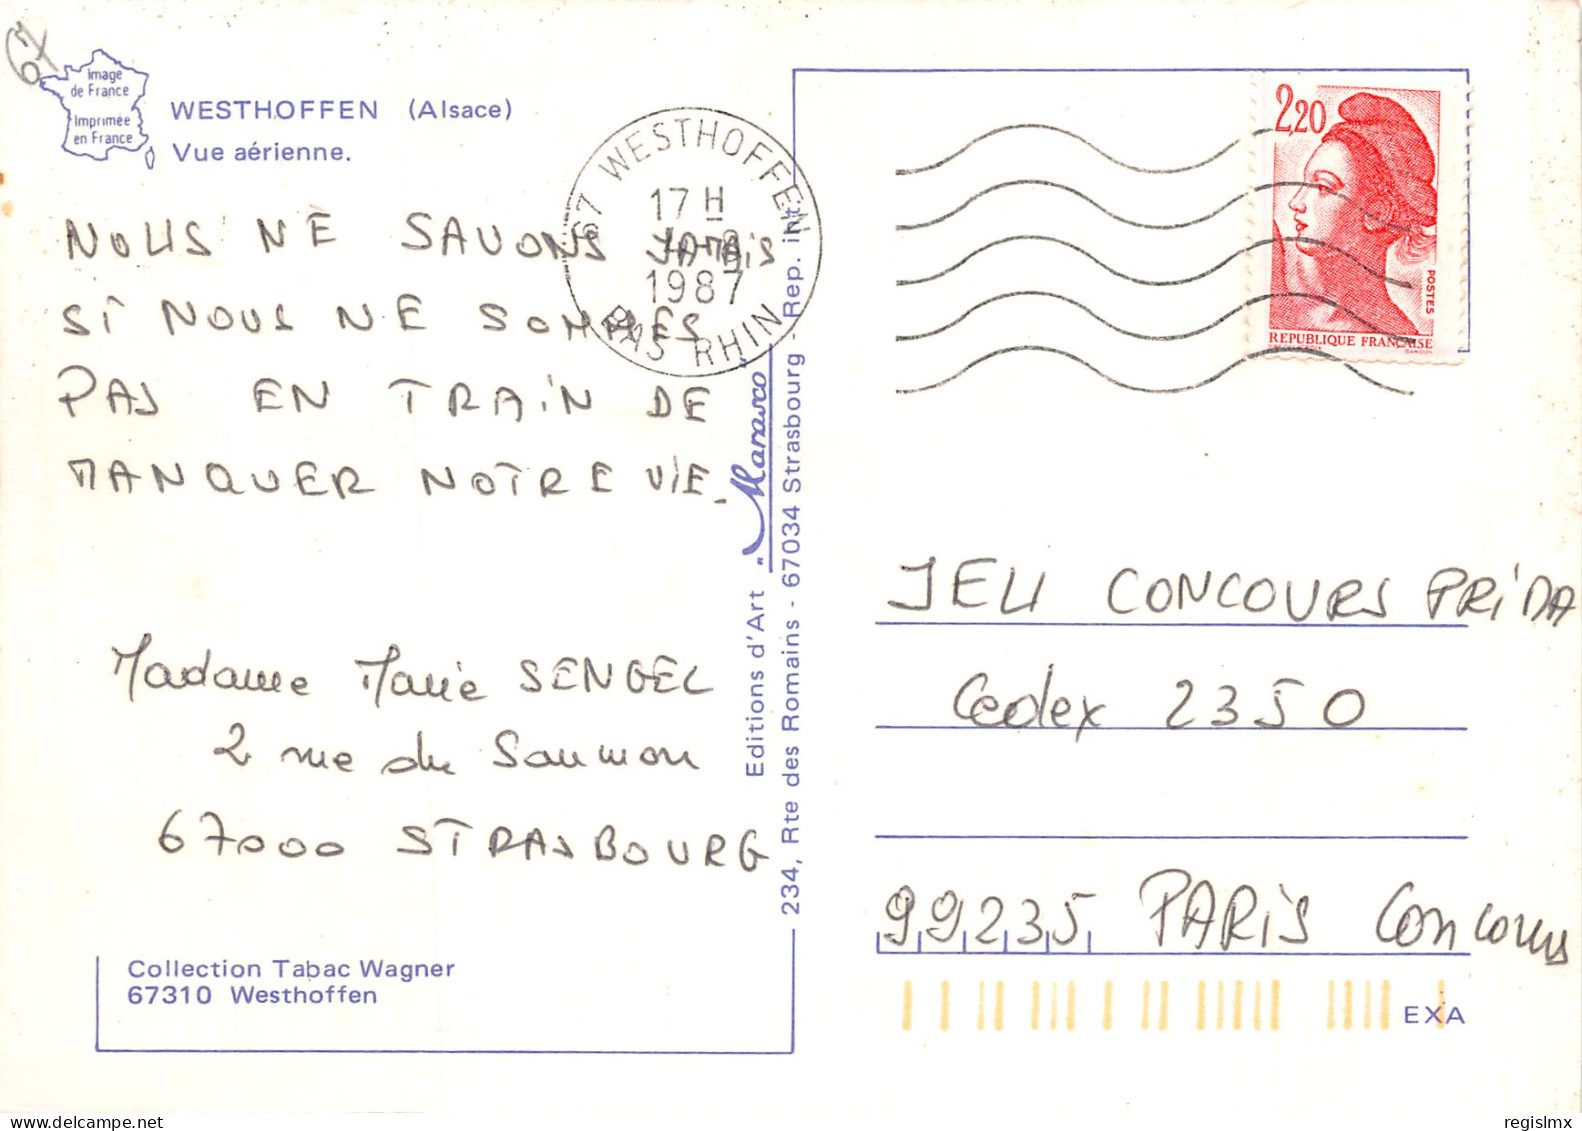 67
Image
de France
Imprimée
en France
WESTHOFFEN (Alsace)
Vue aérienne.
67 WESTHOFFEN
17 H
1987
BAS RHIN
2,20
POSTES
REPUBLIQUE FRANÇAISE
GANDON
NOUS NE SAVONS JAMAIS
SI NOUS NE SOMMES
PAS EN TRAIN DE
MANQUER NOTRE VIE_
Madame Marie SENGEL
2 rue du Saumon
67000 STRASBOURG
Editions d'Art "Marasco"
234, Rte des Romains - 67034 Strasbourg - Rep. int.
JEU CONCOURS PRIDA
Cedex 2350
99235 PARIS Concours
Collection Tabac Wagner
67310 Westhoffen
EXA
regislmx